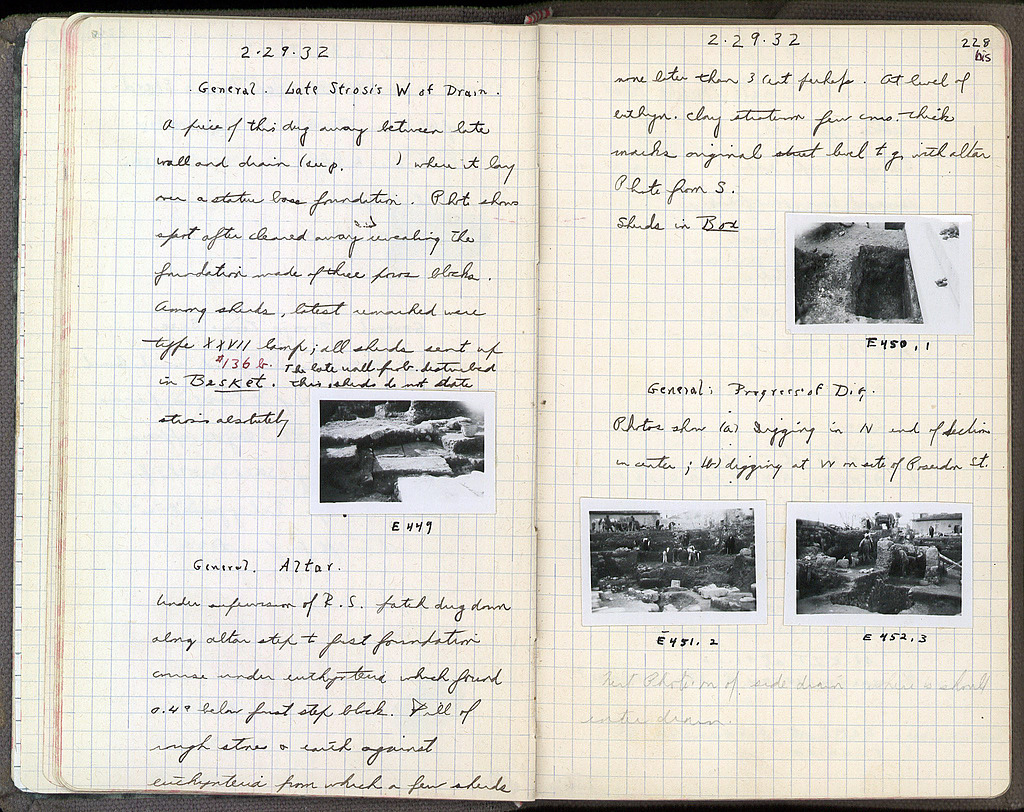 2·29·32
General. Late Strosis W of Drain.
A piece of this dug away between late
wall and drain (see p. ) where it lay
over a statue base foundation. Photo shows
spot after cleared away and revealing the
foundation made of three poros blocks.
Among sherds, latest remarked were
type XXVII lamp; all sherds sent up
#136 b. The late wall prob. disturbed
in Basket. this, sherds do not date
strosis absolutely
E 449
General. Altar.
Under supervision of R.S. patch dug down
along altar step to first foundation
course under euthynteria which found
0.49 below first step block. Fill of
rough stones & earth against
euthynteria from which a few sherds
2·29·32
228
bis
none later than 3 cent perhaps. At level of
euthyn. clay stratum few cms. thick
marks original street level to go with altar
Photo from S.
Sherds in Box
E 450, 1
General: Progress of Dig.
Photos show (a) digging in N end of Section
in center; (b) digging at W on site of Poseidon St.
E 451, 2
E 452, 3
Next Photo in of side drain where it should
enter drain.